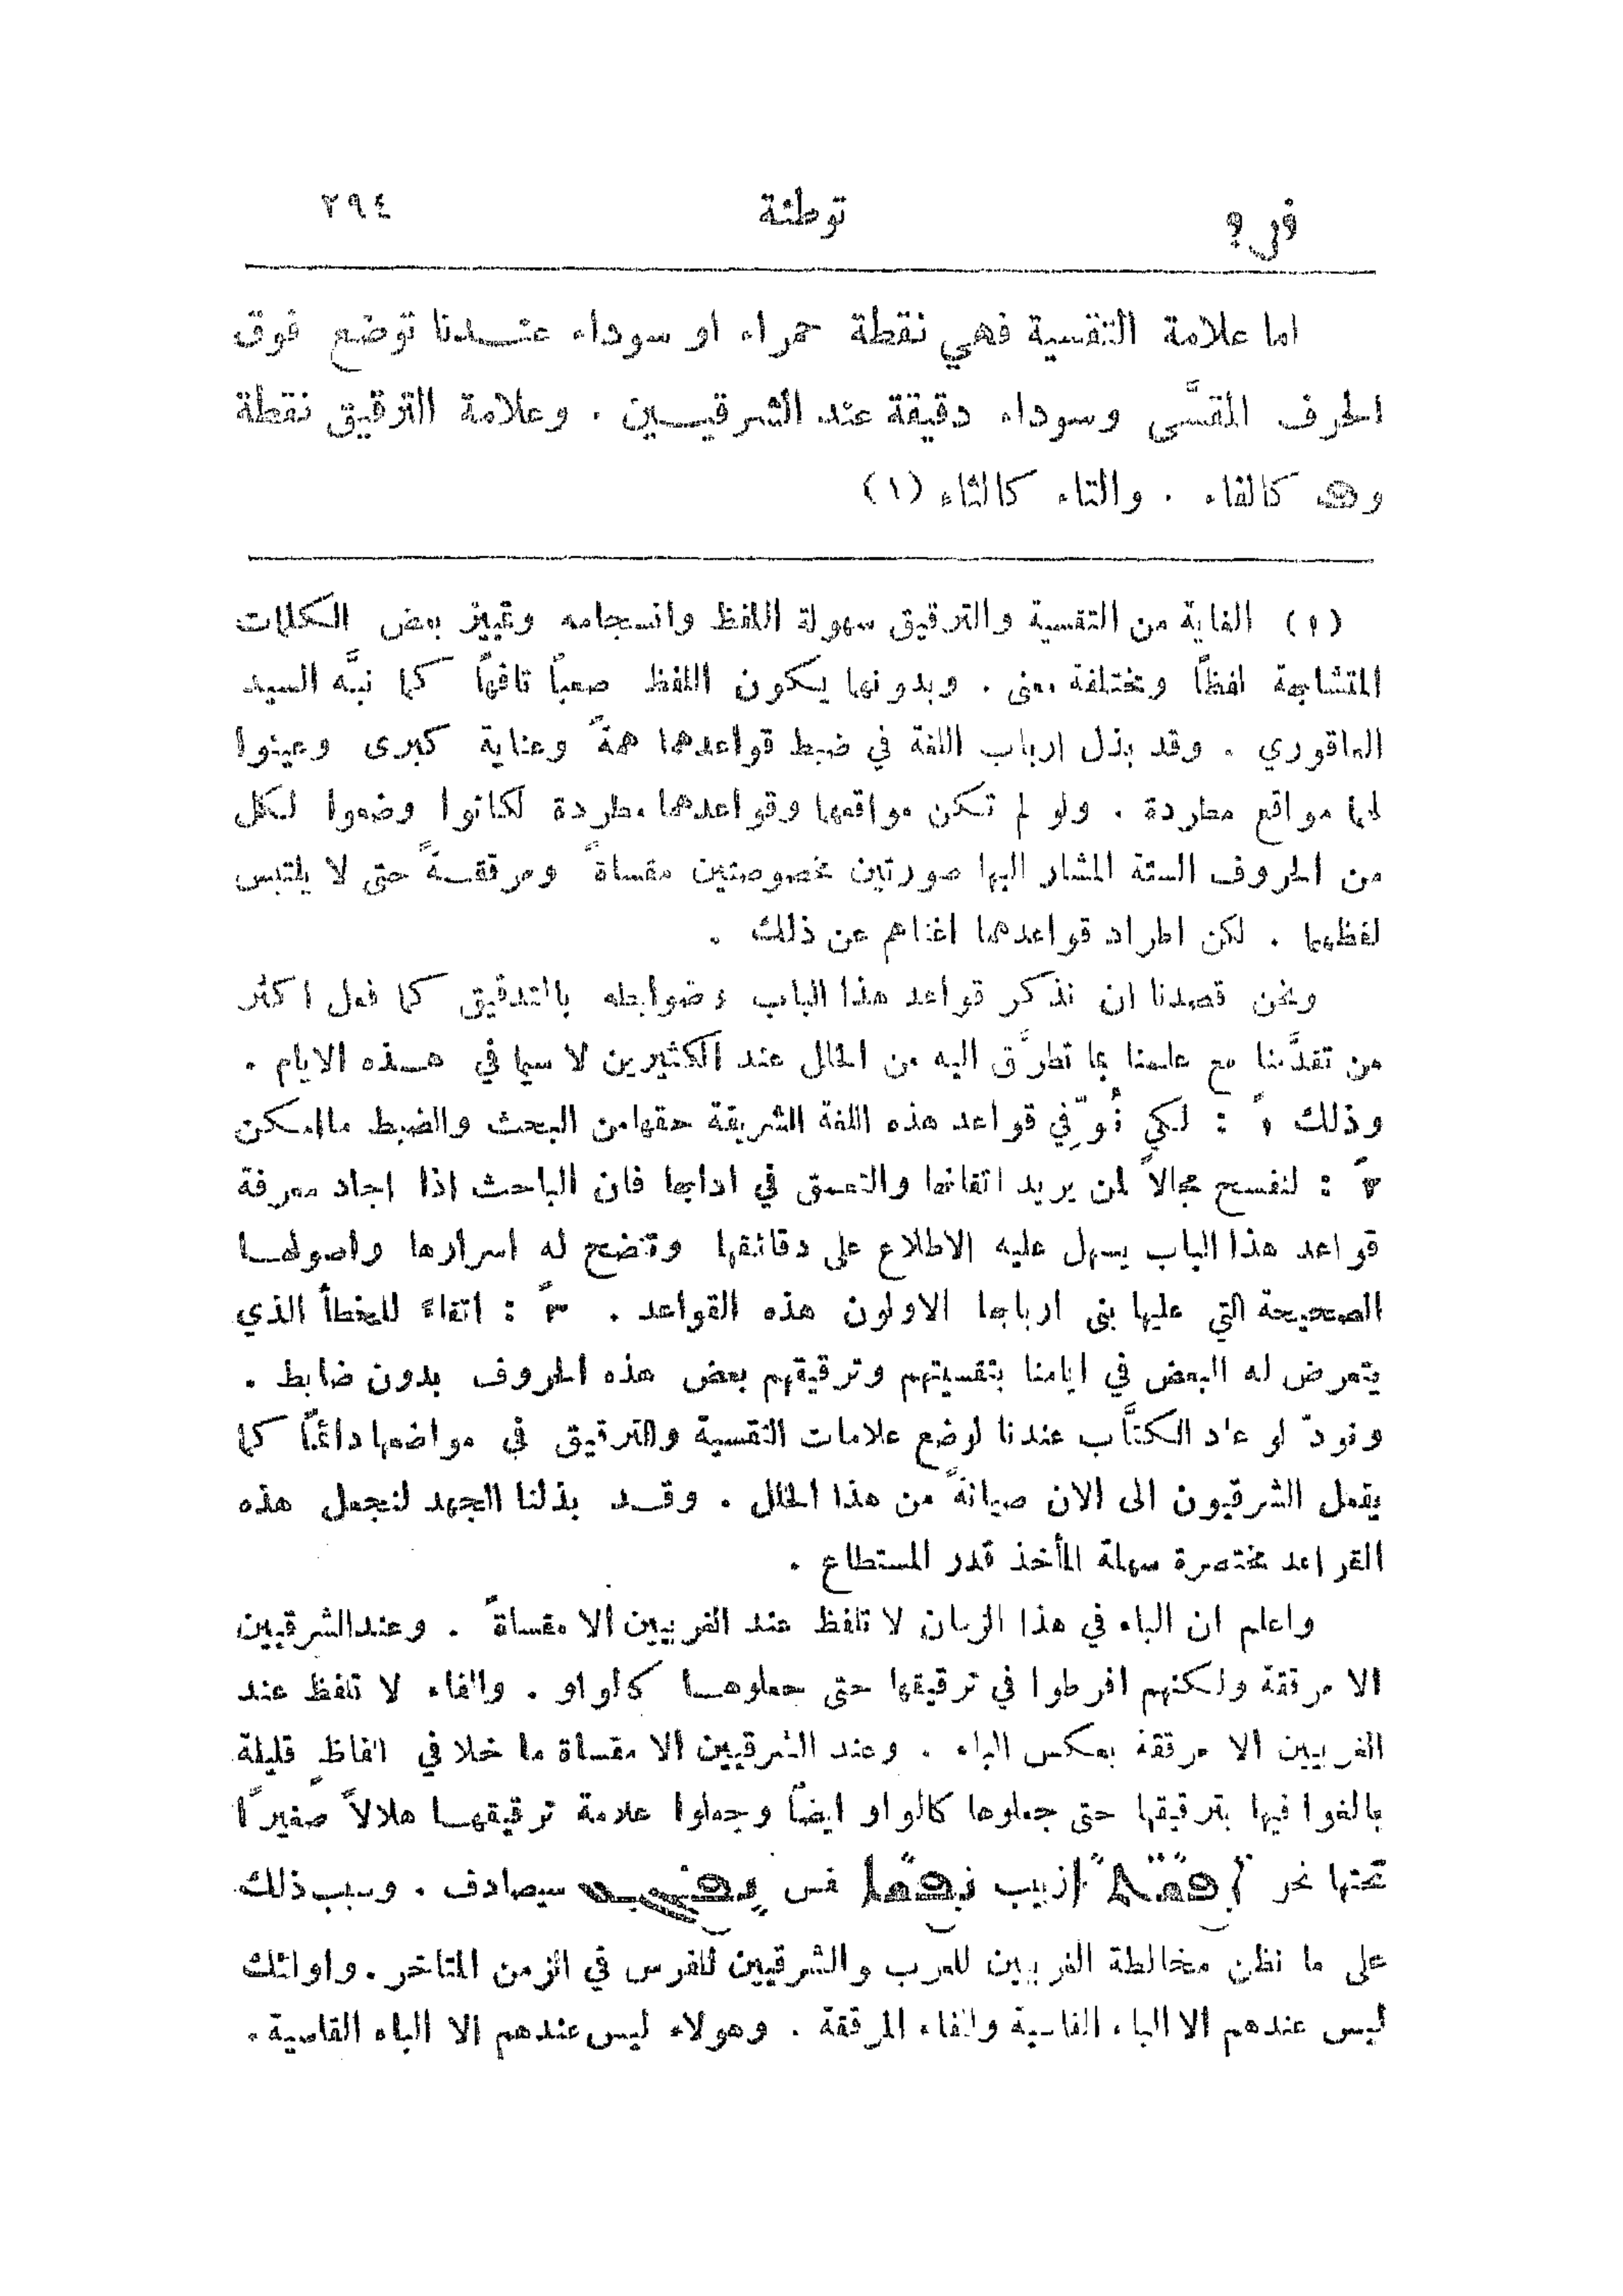 توطئة ٢٩٤
اما علامة التقسية فهي نقطة حمراء او سوداء عنـــدنا توضع فوق
الحرف المقسَّى وسوداء دقيقة عند الشرقيـــين . وعلامة الترقيق نقطة
كالفاء . والتاء كالثاء (١)
(١) الغاية من التقسية والترقيق سهولة اللفظ وانسجامه وتمييز بعض الكلمات
المتشابهة لفظاً ومختلفة معنى . وبدونهما يكون اللفظ صعباً تافهاً كما نبَّه السيد
العاقوري . وقد بذل ارباب اللغة في ضبط قواعدهما همةً وعناية كبرى وعينوا
لهما مواقع مطردة . ولو لم تكن مواقعهما وقواعدهما مطردة لكانوا وضعوا لكل
من الحروف الستة المشار اليها صورتين مخصوصتين مقساةً ومرققـــةً حتى لا يلتبس
لفظهما . لكن اطراد قواعدهما اغناهم عن ذلك .
ونحن قصدنا ان نذكر قواعد هذا الباب وضوابطه بالتدقيق كما فعل اكثر
من تقدَّمنا مع علمنا بما تطرَّق اليه من الخلل عند الكثيرين لا سيما في هـــذه الايام .
وذلك ١ً : لكي نُوَفِّي قواعد هذه اللغة الشريفة حقهامن البحث والضبط ماامـكن
٢ً : لنفسح مجالاً لمن يريد اتقانها والتعمق في ادابها فان الباحث اذا اجاد معرفة
قواعد هذا الباب يسهل عليه الاطلاع على دقائقها وتتضح له اسرارها واصولهـــا
الصحيحة التي عليها بنى اربابها الاولون هذه القواعد . ٣ً : اتقاءً للخطأ الذي
يتعرض له البعض في ايامنا بتقسيتهم وترقيقهم بعض هذه الحروف بدون ضابط .
ونودّ لو عاد الكتَّاب عندنا لوضع علامات التقسية والترقيق في مواضعها دائماً كما
يفعل الشرقيون الى الان صيانةً من هذا الخلل . وقـــد بذلنا الجهد لنجعل هذه
القواعد مختصرة سهلة المأخذ قدر المستطاع .
واعلم ان الباء في هذا الزمان لا تلفظ عند الغربيين الا مقساةً . وعندالشرقيين
الا مرققة ولكنهم افرطوا في ترقيقها حتى جعلوهـــا كالواو . والفاء لا تلفظ عند
الغربيين الا مرققة بعكس الباء . وعند الشرقيين الا مقساة ما خلا في الفاظٍ قليلة
بالغوا فيها بترقيقها حتى جعلوها كالواو ايضاً وجعلوا علامة ترقيقهـــا هلالاً صغيراً
تحتها نحو ܙܦܬܐ زبيب ܢܦܫܐ نفس سيصادف . وسبب ذلك
على ما نظن مخالطة الغربيين للعرب والشرقيين للفرس في الزمن المتاخر . واوائك
ليس عندهم الا الباء القاسية والفاء المرققة . وهولاء ليس عندهم الا الباء القاسية .